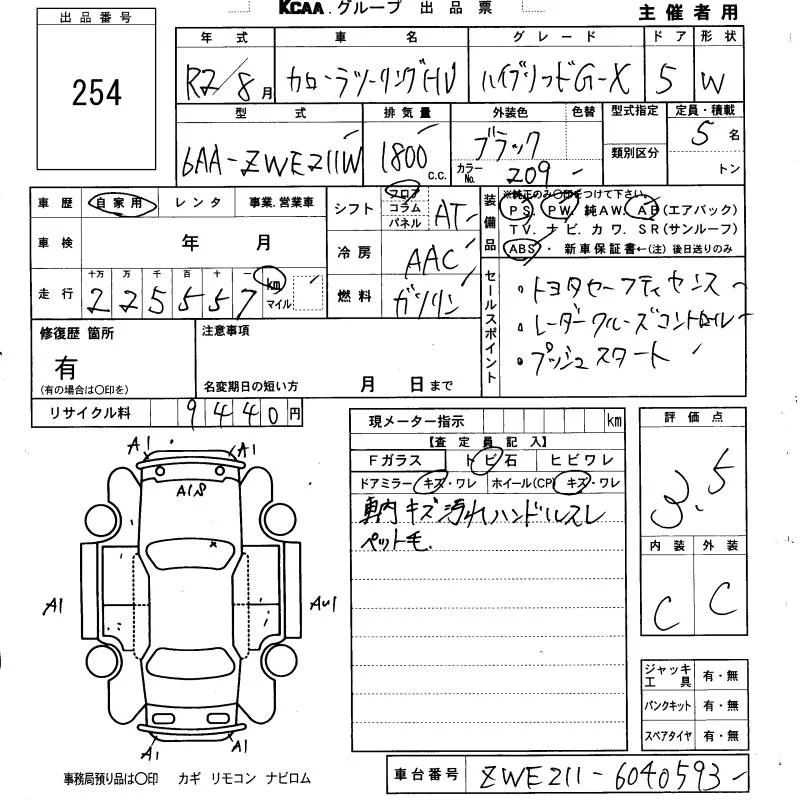 KCAA.グループ 出品票
主催者用
出品番号
254
年式 車名 グレード ドア 形状
R2/8月 カローラツーリングHV ハイブリッドG-X 5 W
型式 排気量 外装色 色替 型式指定 定員・積載
6AA-ZWE211W 1800 c.c. ブラック 5名
カラーNo. 209 類別区分 トン
車歴 自家用 レンタ 事業.営業車
シフト フロア コラム パネル AT
装備品 ※純正のみ〇印をつけて下さい。
PS. PW. 純AW. AB(エアバック)
TV. ナビ. カワ. SR(サンルーフ)
ABS・ 新車保証書←(注)後日送りのみ
車検 年 月
冷房 AAC
走行 十万 万 千 百 十 一 km マイル
225557
燃料 ガソリン
セールスポイント
・トヨタセーフティセンス
・レーダークルーズコントロール
・プッシュスタート
修復歴 箇所
有
(有の場合は〇印を)
注意事項
名変期日の短い方 月 日まで
リサイクル料 9440円
現メーター指示 km
【査定員記入】
Fガラス トビ石 ヒビワレ
ドアミラー キズ・ワレ ホイール(CP) キズ・ワレ
車内キズ汚れハンドルスレ
ペット毛.
評価点
3.5
内装 外装
C C
A1 A1
A18
A1
A1
A1
ジャッキ工具 有・無
パンクキット 有・無
スペアタイヤ 有・無
事務局預り品は〇印 カギ リモコン ナビロム
車台番号 ZWE211-6040593